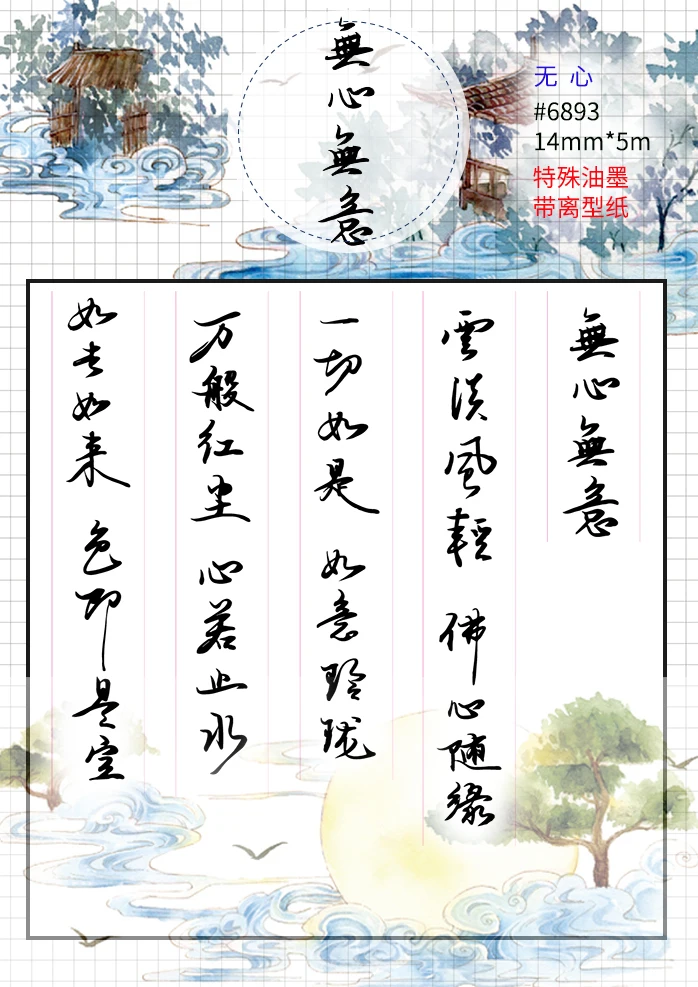 無心無意
无心
#6893
14mm*5m
特殊油墨
带离型纸
無心無意
雲淡風輕 佛心随緣
一切如是 如意玲珑
万般红尘 心若止水
如去如来 色即是空